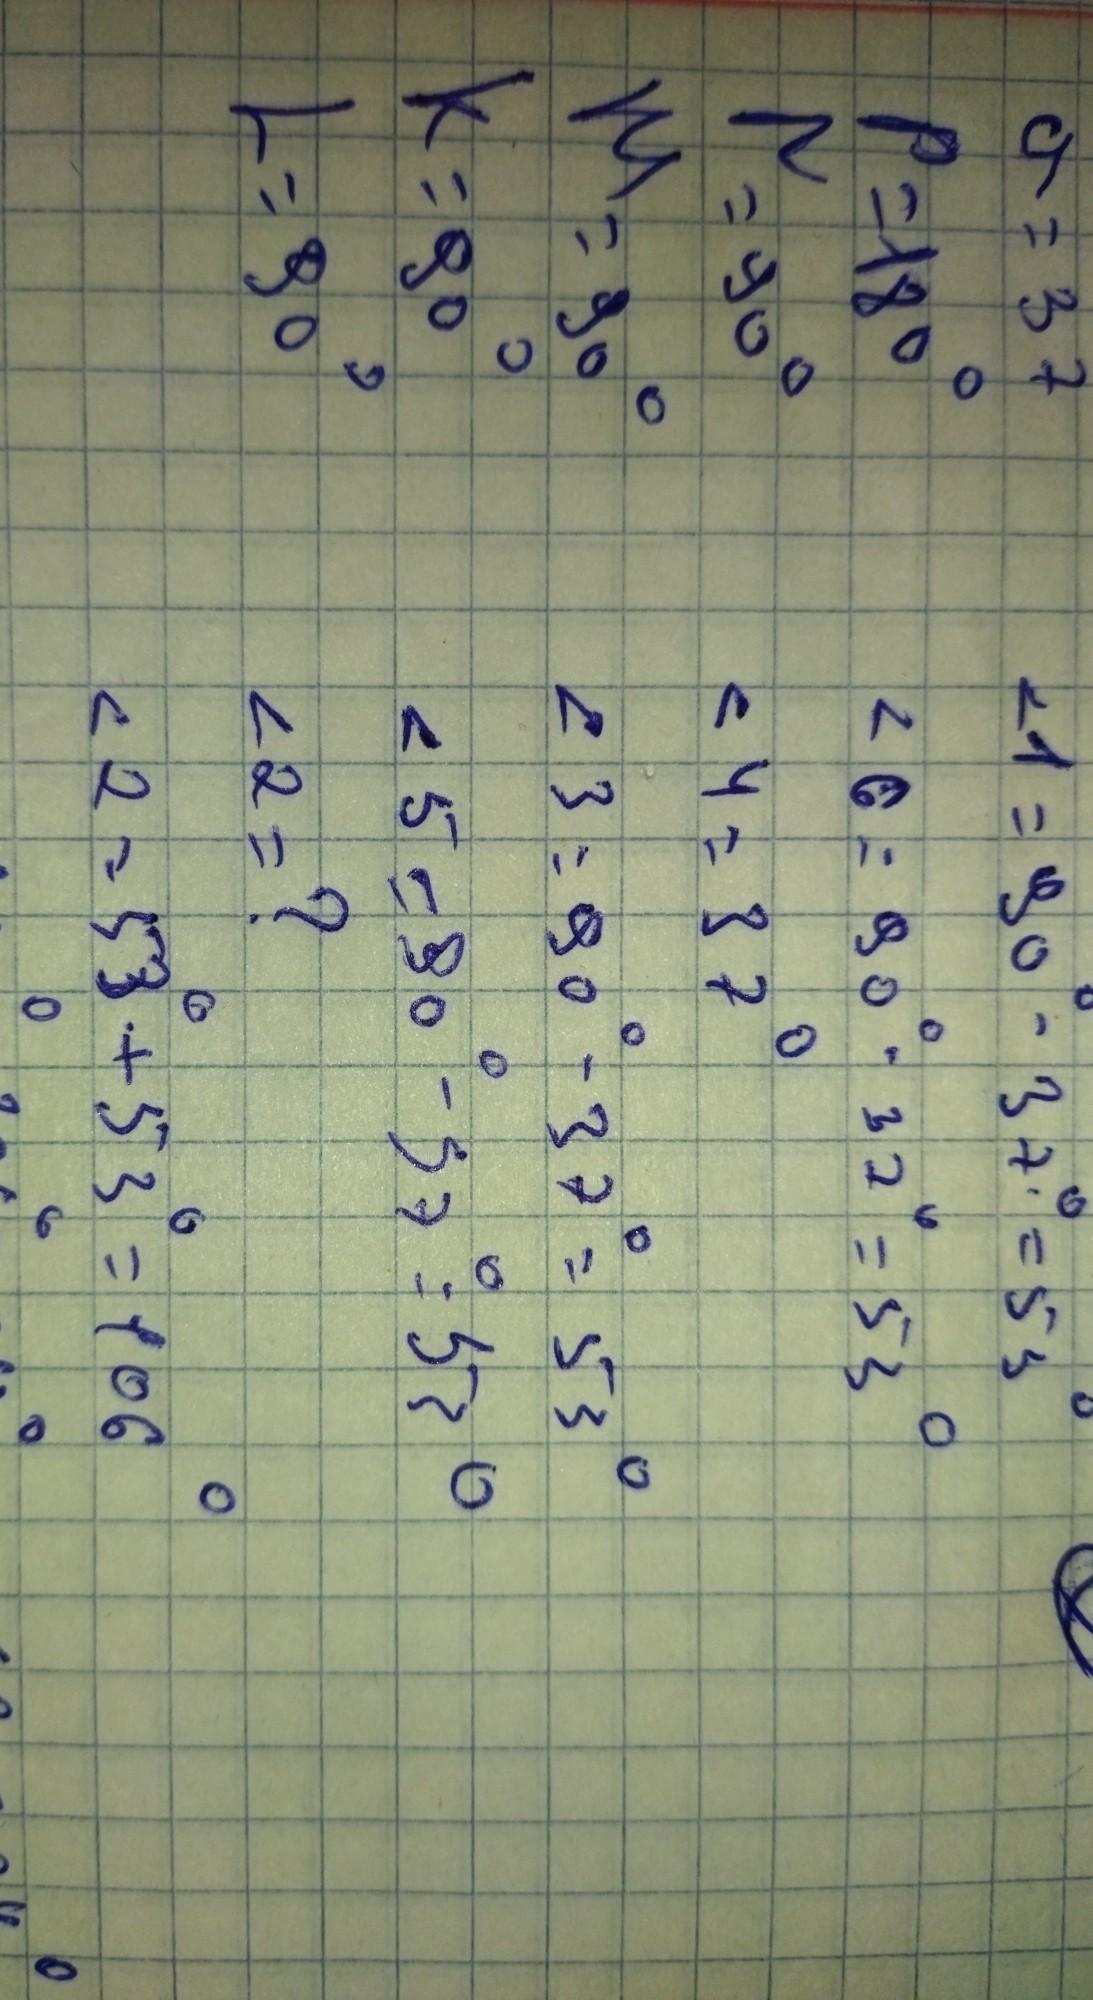 a = 37
P = 180°
N = 90°
M = 90°
K = 90°
L = 90°
<1 = 90° - 37° = 53°
<6 = 90° - 37° = 53°
<4 = 37°
<3 = 90° - 37° = 53°
<5 = 90° - 37° = 53°
<2 = ?
<2 = 53° + 53° = 106°